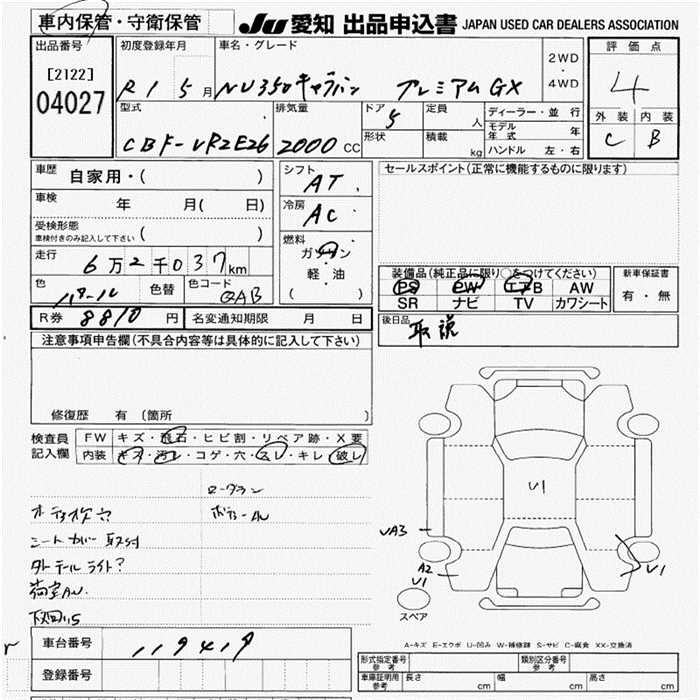 車内保管・守衛保管
JU 愛知 出品申込書 JAPAN USED CAR DEALERS ASSOCIATION
出品番号
[2122]
04027
初度登録年月
R1 5月
車名・グレード
NV350キャラバン プレミアムGX
2WD
・
4WD
評価点
4
外装 内装
C B
型式
CBF-VR2E26
排気量
2000 CC
ドア
5
形状
定員
人
積載
kg
ディーラー・並行
モデル年式 年
ハンドル 左・右
車歴
自家用・( )
車検
年 月( 日)
受検形態
車検付きのみ記入して下さい ( )
走行
6万2千037km
色
パール
色替
色コード
QAB
シフト
AT
冷房
AC
燃料
ガソリン
・
軽油
( )
R券 8810 円
名変通知期限 月 日
セールスポイント(正常に機能するものに限ります)
装備品(純正品に限り○をつけてください)
PS PW エアB AW
SR ナビ TV カワシート
新車保証書
有・無
後日品
取説
注意事項申告欄(不具合内容等は具体的に記入して下さい)
修復歴 有 (箇所 )
検査員記入欄
FW キズ・飛石・ヒビ割・リペア跡・X要
内装 キズ・汚レ・コゲ・穴・スレ・キレ・破レ
シートカバー取付
外テールライト?
U1
A2
U1
U1
スペア
A-キズ E-エクボ U-凹み W-補修跡 S-サビ C-腐食 XX-交換済
車台番号
119419
登録番号
形式指定番号
参考
類別区分番号
参考
車庫証明用
参考
長さ cm
幅 cm
高さ cm